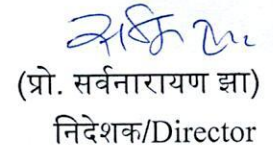 (प्रो. सर्वनारायण झा)
निदेशक/Director